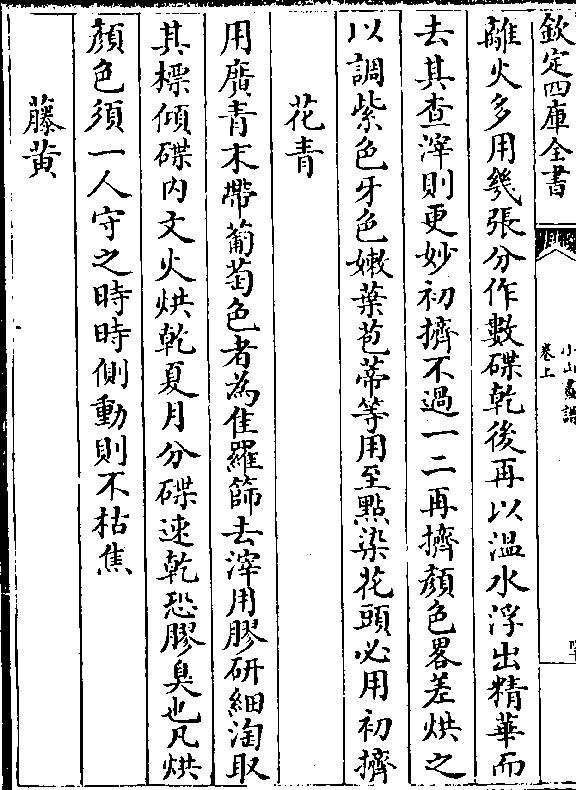 欽定四庫全書
小山畫譜
卷上
離火多用幾張分作數碟乾後再以溫水浮出精華而
去其查滓則更妙初擠不過一二再擠顏色畧差烘之
以調紫色牙色嫩葉苞蒂等用至點染花頭必用初擠
花青
用廣青末帶葡萄色者為佳羅篩去滓用膠研細淘取
其標傾碟內文火烘乾夏月分碟速乾恐膠臭也凡烘
顏色須一人守之時時側動則不枯焦
藤黃